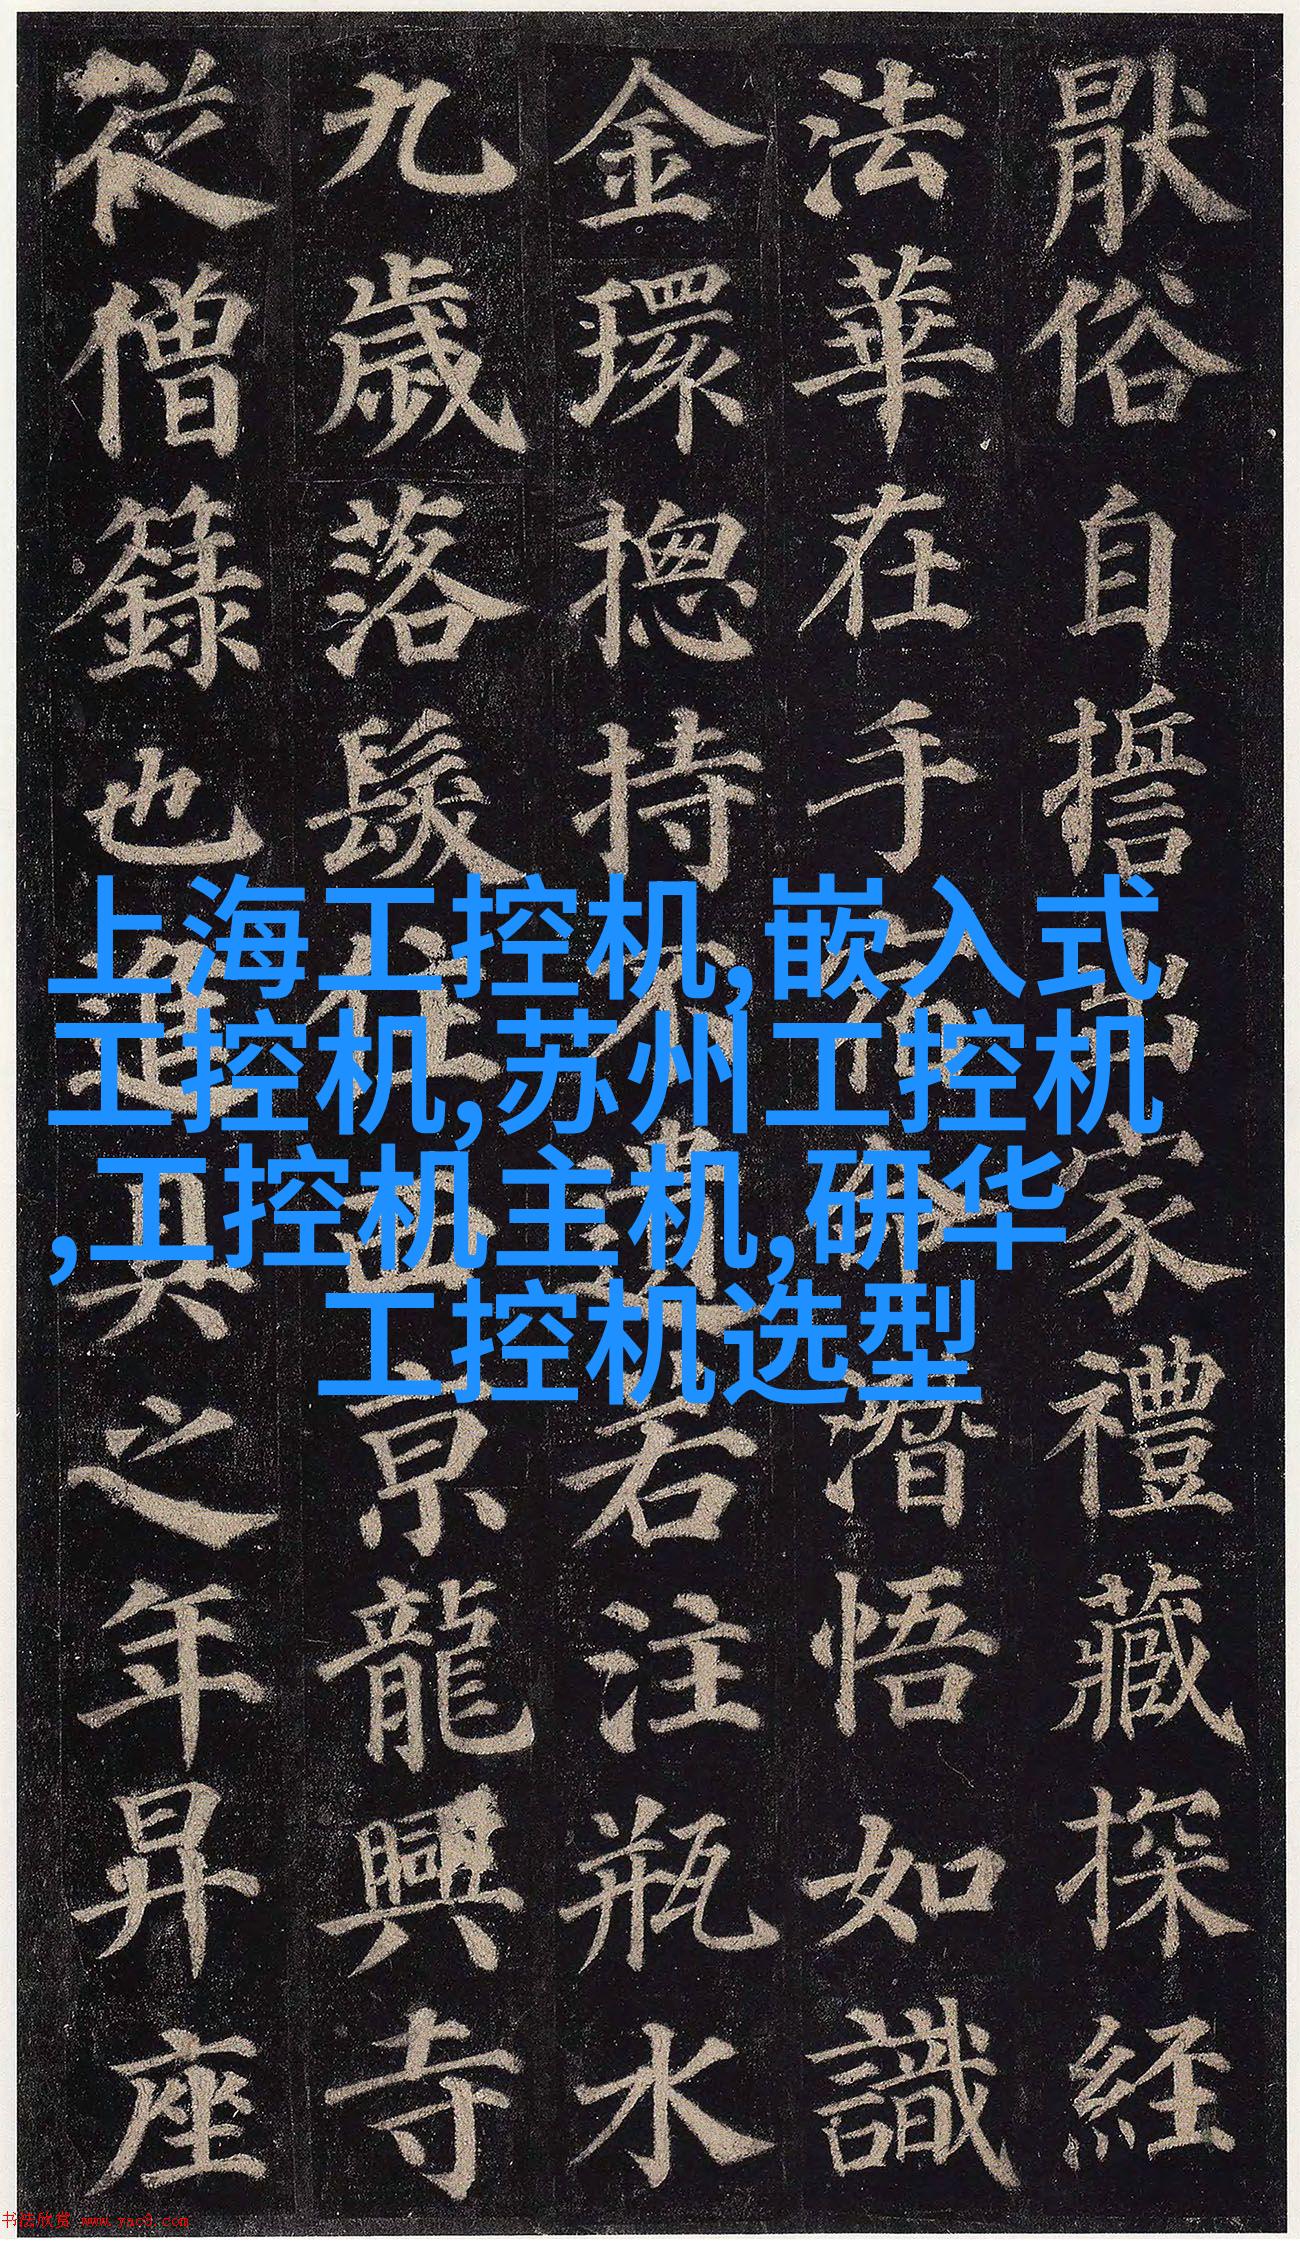 猒俗自誓出家禮藏探經
法華在手宿命潛悟如識
金環摠持不遺若注瓶水
九歲落髮住西京龍興寺
從僧籙也進具之年昇座
上海工控机,嵌入式
工控机,苏州工控机
,工控机主机,研华
工控机选型
书法欣赏 www.yac8.com